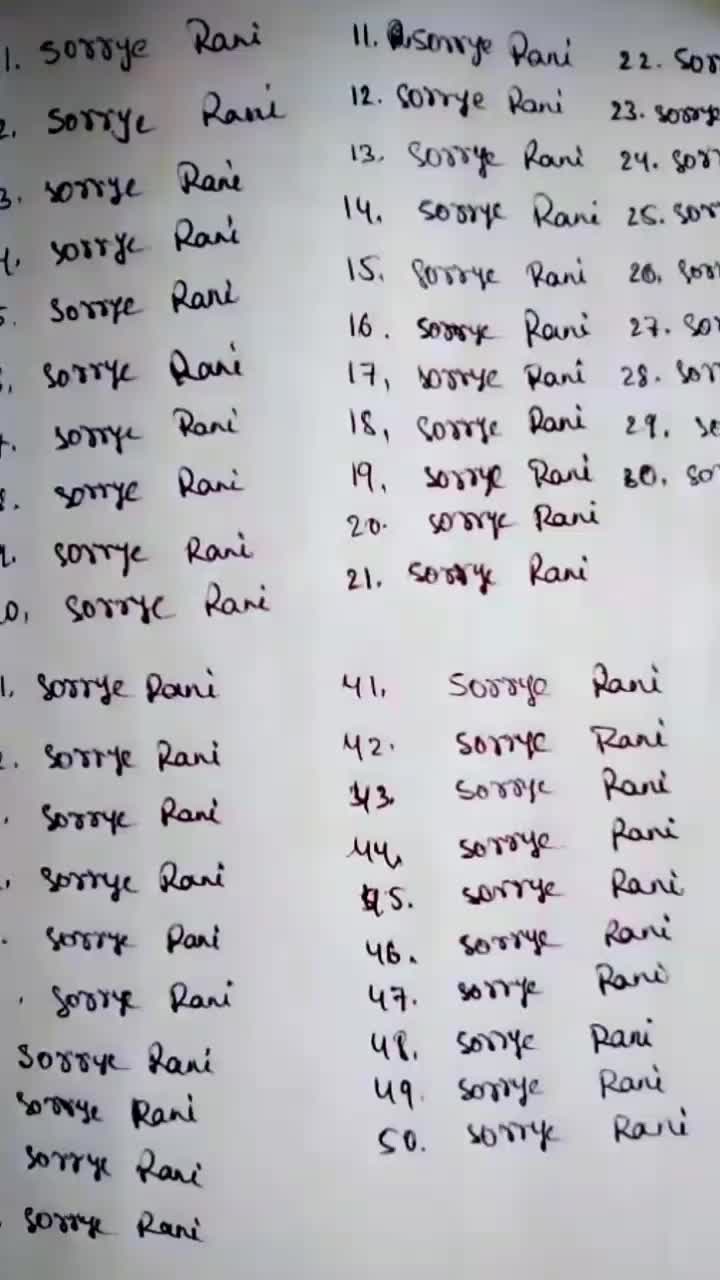 1. sorrye Rani
2. sorrye Rani
3. sorrye Rani
4. sorrye Rani
5. sorrye Rani
sorrye Rani
sorrye Rani
8. sorrye Rani
9. sorrye Rani
0. sorrye Rani
11. sorrye Rani
12. sorrye Rani
13. sorrye Rani
14. sorrye Rani
15. sorrye Rani
16. sorrye Rani
17, sorrye Rani
18, sorrye Rani
19, sorrye Rani
20. sorrye Rani
21. sorrye Rani
22. sor
23. sorrye
24. sorr
25. sorr
26. sorr
27. so
28. sorr
29. so
30. so
1. sorrye Rani
2. sorrye Rani
sorrye Rani
sorrye Rani
sorrye Rani
sorrye Rani
sorrye Rani
sorrye Rani
sorrye Rani
sorrye Rani
41. sorrye Rani
42. sorrye Rani
43. sorrye Rani
44. sorrye Rani
45. sorrye Rani
46. sorrye Rani
47. sorrye Rani
48. sorrye Rani
49. sorrye Rani
50. sorrye Rani